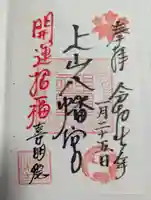 奉拝
令和七年
一月二十五日
上山八幡宮
開運招福